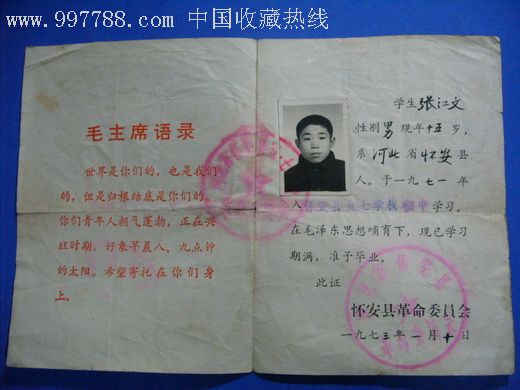 www.997788.com 中国收藏热线
毛主席语录
世界是你们的，也是我们
的，但是归根结底是你们的。
你们青年人朝气蓬勃，正在兴
旺时期，好象早晨八、九点钟
的太阳。希望寄托在你们身
上。
学生张江文
性别男现年十五岁，
系河北省怀安县
人。于一九七一年
入怀安县五七学校初中学习，
在毛泽东思想哺育下，现已学习
期满，准予毕业。
此证
怀安县革命委员会
一九七三年一月十日